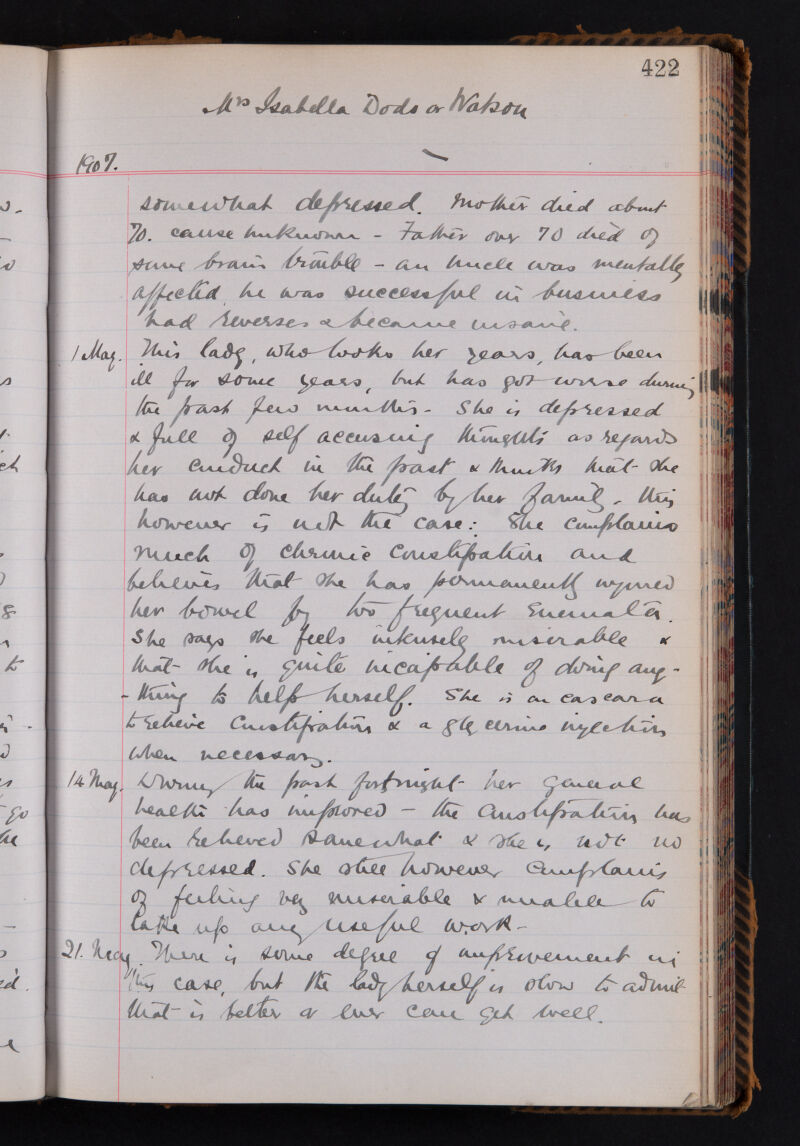 422
Mrs Isabella Dods or Watson
1907.
somewhat depressed. Mother died about
70. cause unknown - Father over 70 died of
some brain trouble - an uncle was mentally
affected, he was successful in business
had reverses & became insane.
1 May. This lady, who looks her years, has been
ill for some years, but has got worse during
the past few months. She is depressed
& full of self accusing thoughts as regards
her conduct in the past & thinks that she
has not done her duty by her family. This
however is not the case: She complains
much of chronic constipation and
believes that she has permanently injured
her bowel by too frequent enemata.
She says she feels intensely miserable &
that she is quite incapable of doing any-
-thing to help herself. She is on cascara
to relieve constipation & a glycerine injection
when necessary.
14 May. During the past fortnight her general
health has improved - the constipation has
been relieved somewhat & she is not so
depressed. She still however complains
of feeling very miserable & unable to
take up any useful work -
21. May. There is some degree of improvement in
this case, but the lady herself is slow to admit
that is better or ever can get well.